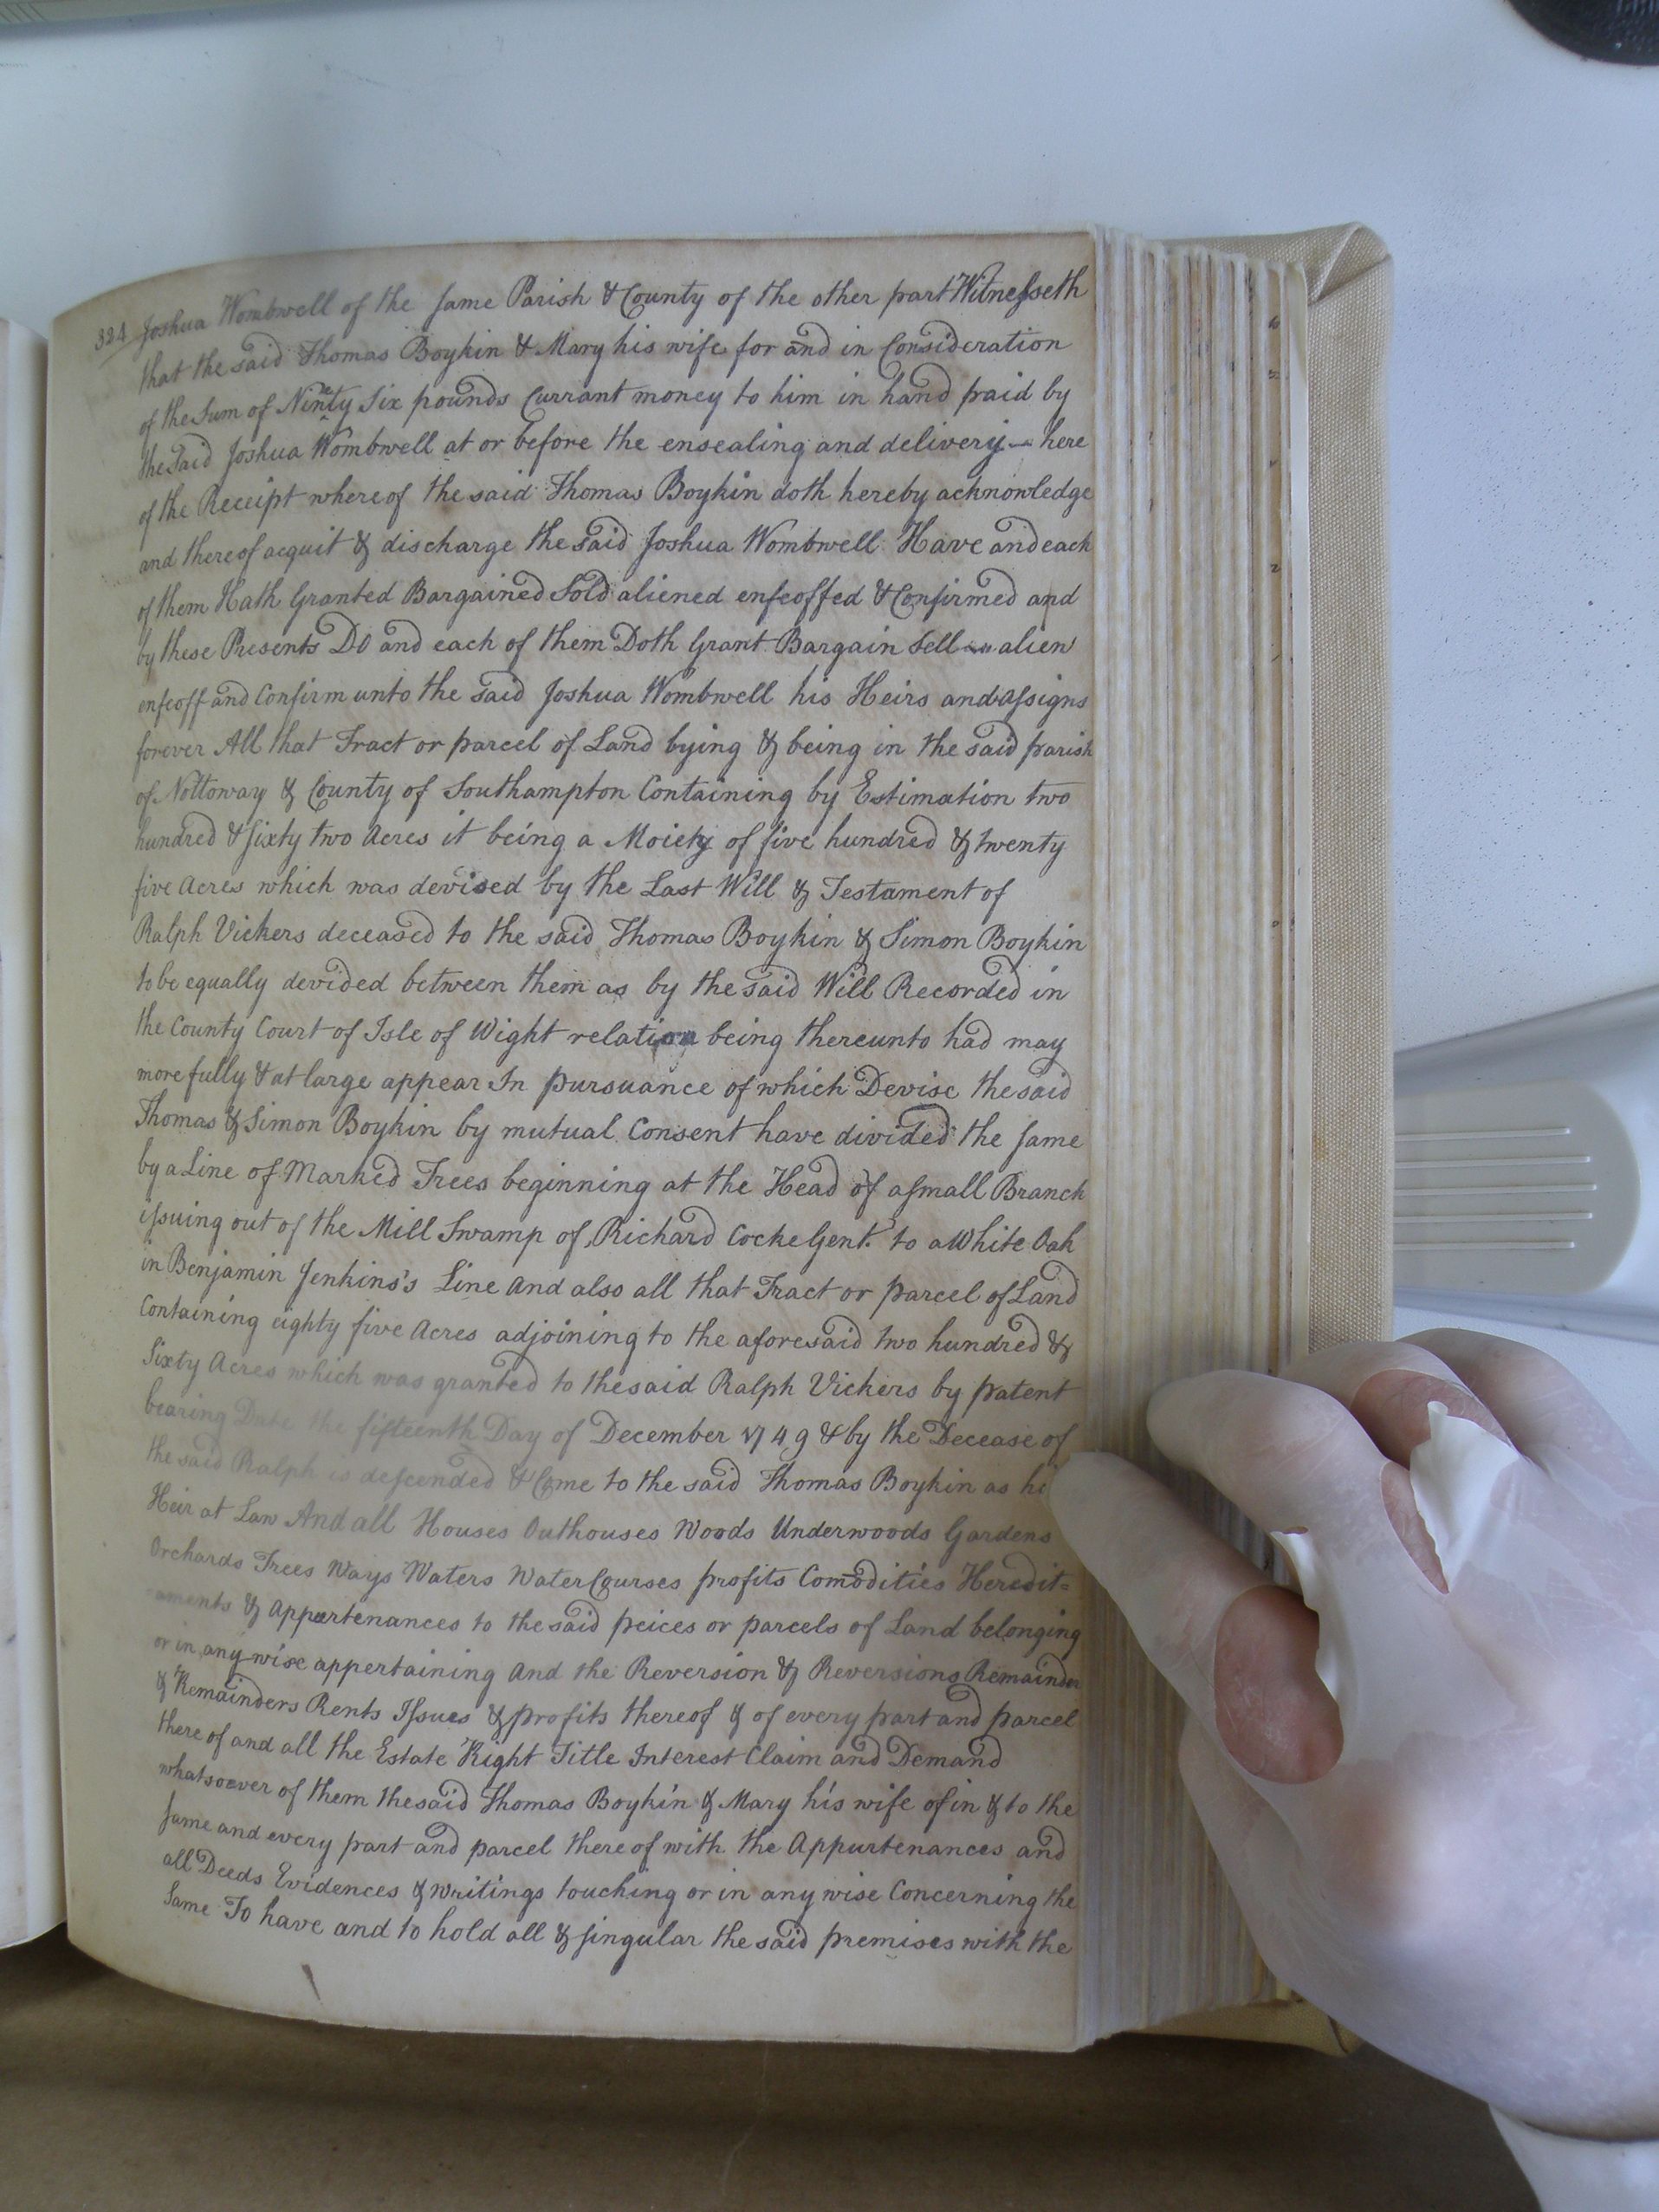 324 Joshua Wombwell of the same Parish & County of the other part Witnesseth
that the said Thomas Boykin & Mary his wife for and in Consideration
of the Sum of Ninety Six pounds Currant money to him in hand paid by
the said Joshua Wombwell at or before the ensealing and delivery here
of the Receipt whereof the said Thomas Boykin doth hereby acknowledge
and thereof acquit & discharge the said Joshua Wombwell Have and each
of them Hath Granted Bargained Sold aliened enfeoffed & Confirmed and
by these Presents Do and each of them Doth Grant Bargain Sell alien
enfeoff and Confirm unto the said Joshua Wombwell his Heirs and assigns
forever All that Tract or parcel of Land lying & being in the said parish
of Nottoway & County of Southampton Containing by Estimation two
hundred & sixty two Acres it being a Moiety of five hundred & twenty
five Acres which was devised by the Last Will & Testament of
Ralph Vickers deceased to the said Thomas Boykin & Simon Boykin
to be equally devided between them as by the said Will Recorded in
the County Court of Isle of Wight relation being thereunto had may
more fully & at large appear In pursuance of which Devise the said
Thomas & Simon Boykin by mutual Consent have divided the same
by a Line of Marked Trees beginning at the Head of a small Branch
issuing out of the Mill Swamp of Richard Cocke Gent. to a White Oak
in Benjamin Jenkins's Line And also all that Tract or parcel of Land
Containing eighty five Acres adjoining to the aforesaid two hundred &
Sixty Acres which was granted to the said Ralph Vickers by patent
bearing Date the fifteenth Day of December 1749 & by the Decease of
the said Ralph is descended & Come to the said Thomas Boykin as hi
Heir at Law And all Houses Outhouses Woods Underwoods Gardens
Orchards Trees Ways Waters Water Courses profits Comodities Heredit=
aments & Appurtenances to the said peices or parcels of Land belonging
or in any wise appertaining And the Reversion & Reversions Remainder
& Remainders Rents Issues & profits thereof & of every part and parcel
there of and all the Estate Right Title Interest Claim and Demand
whatsoever of them the said Thomas Boykin & Mary his wife of in & to the
same and every part and parcel there of with the Appurtenances and
all Deeds Evidences & writings touching or in any wise Concerning the
Same To have and to hold all & singular the said premises with the